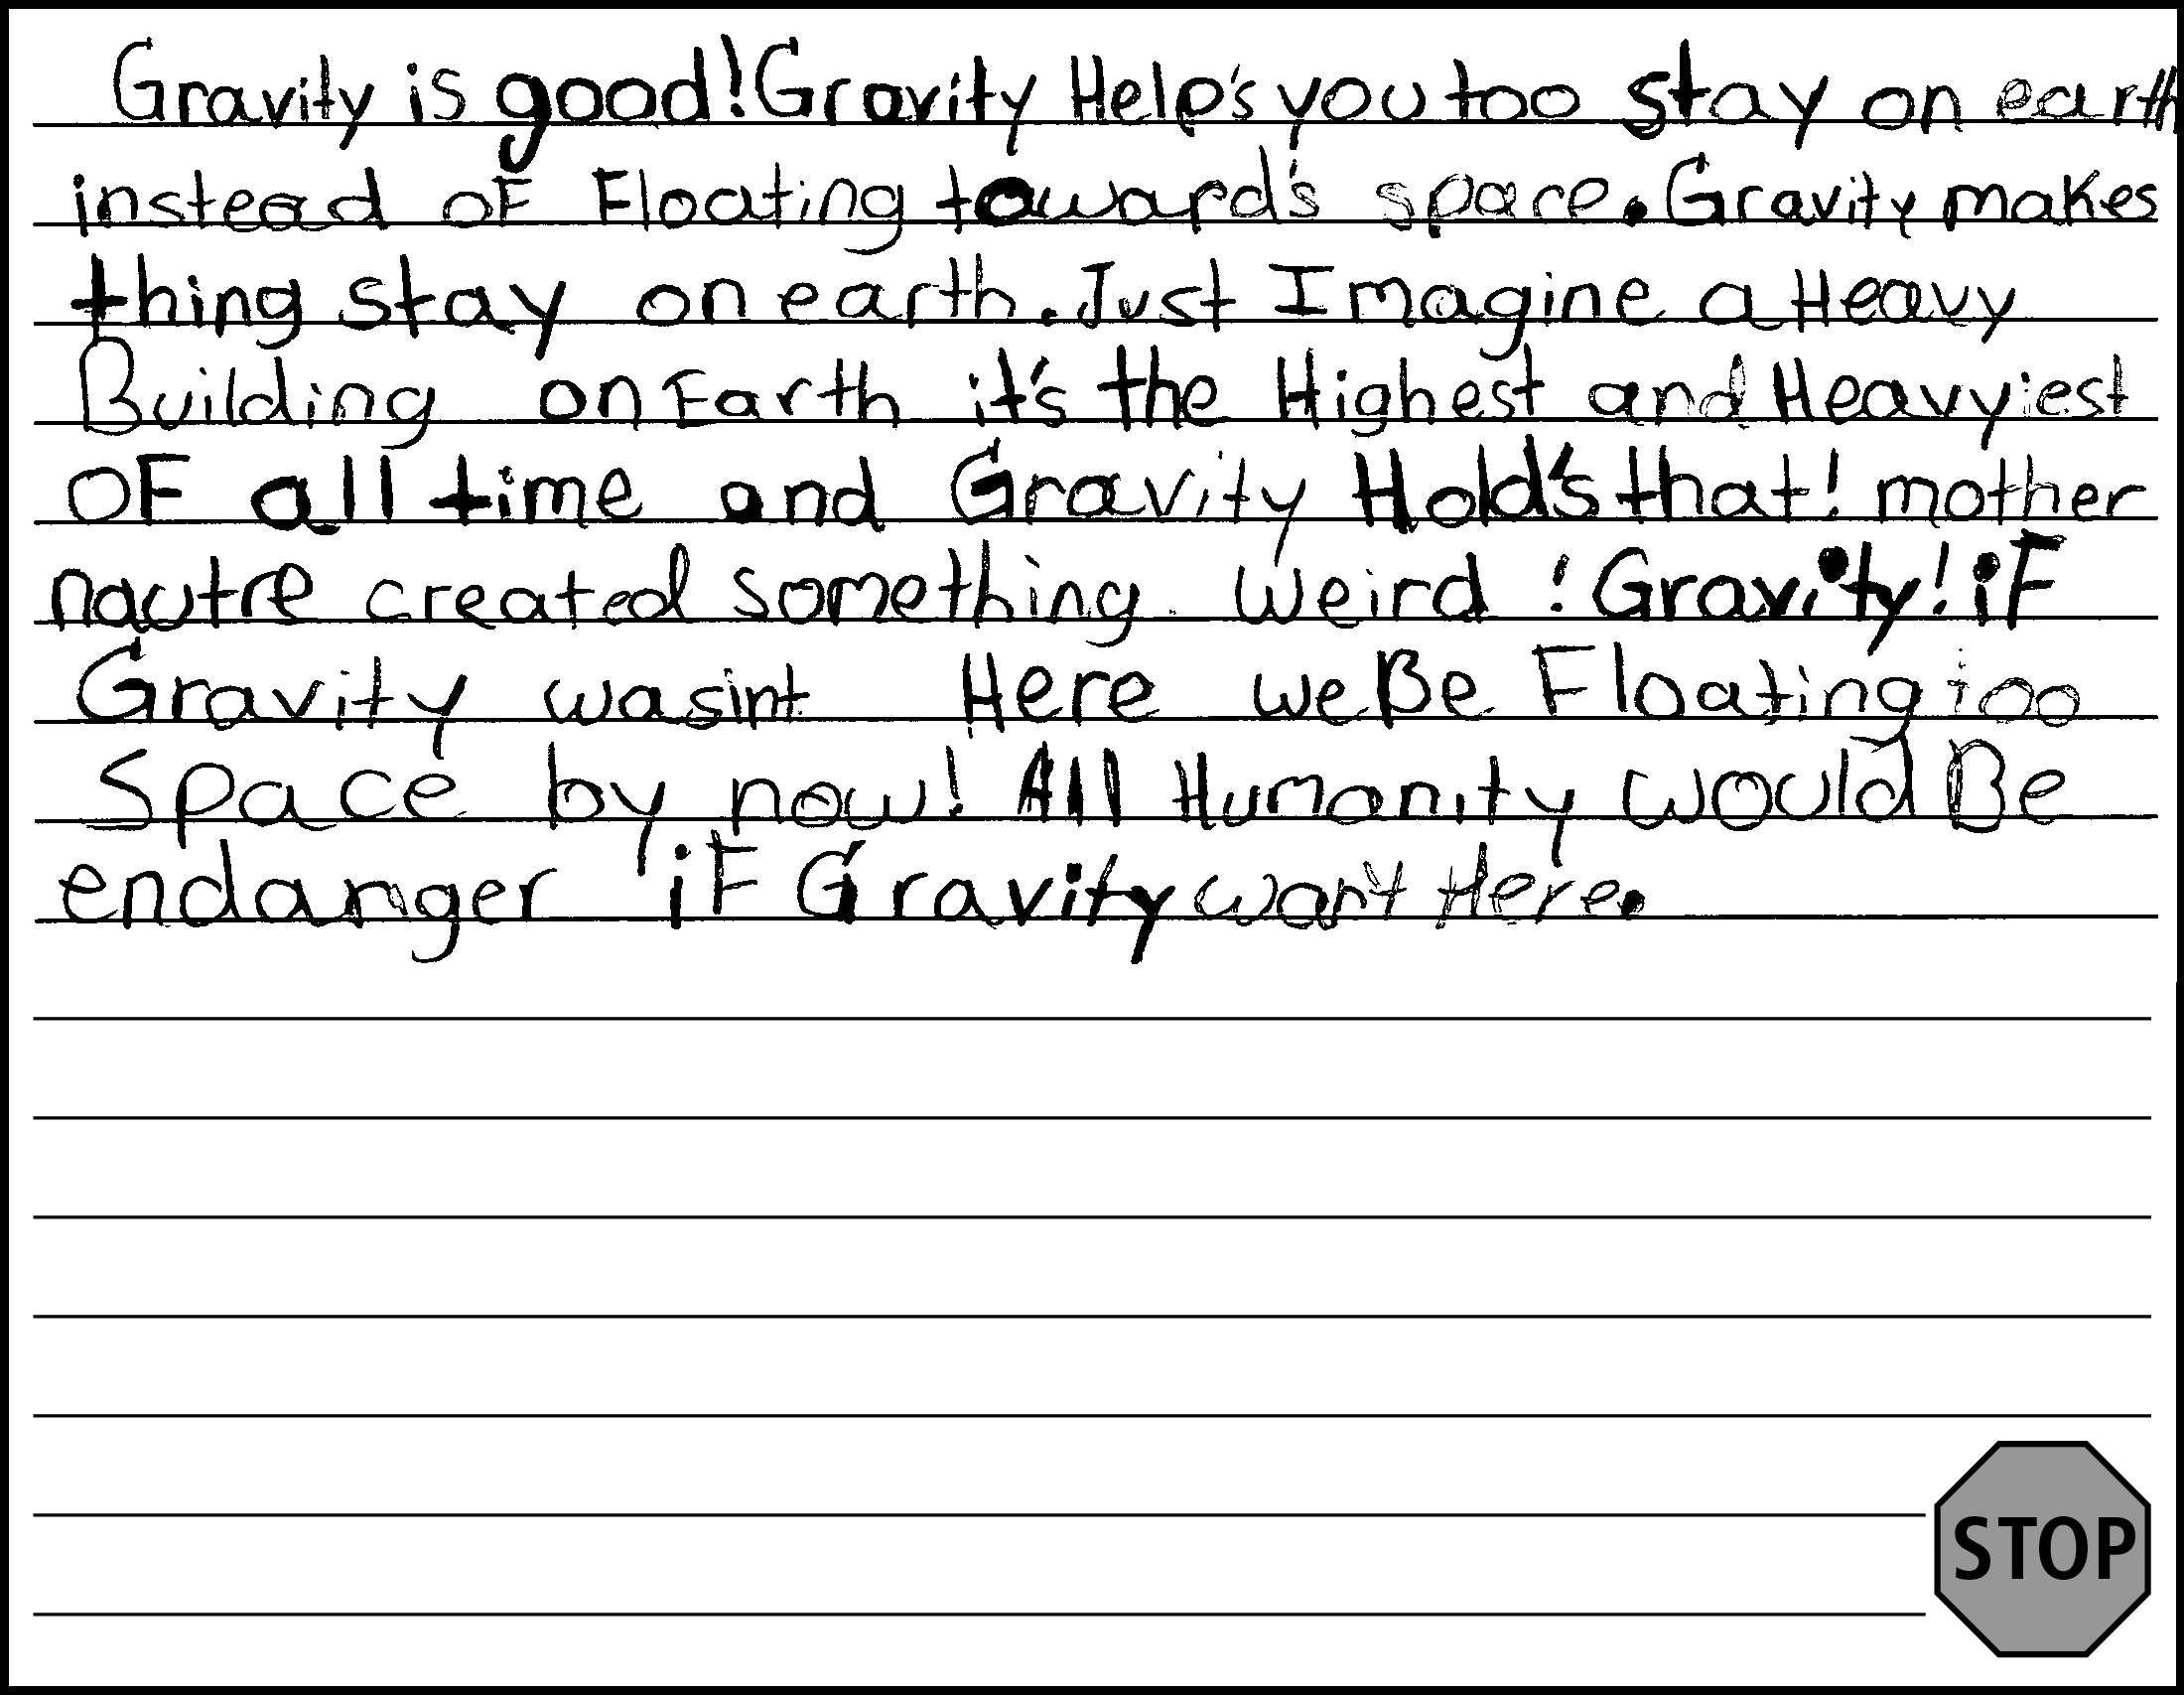 Gravity is good! Gravity Help's you too stay on earth
instead oF Floating toward's space. Gravity makes
thing stay on earth. Just Imagine a Heavy
Building on Earth it's the Highest and Heavyiest
OF all time and Gravity Hold's that! mother
nautre created something weird ! Gravity! iF
Gravity wasint Here we Be Floating too
Space by now! All Humanity would Be
endanger iF Gravity wan't Here.
STOP